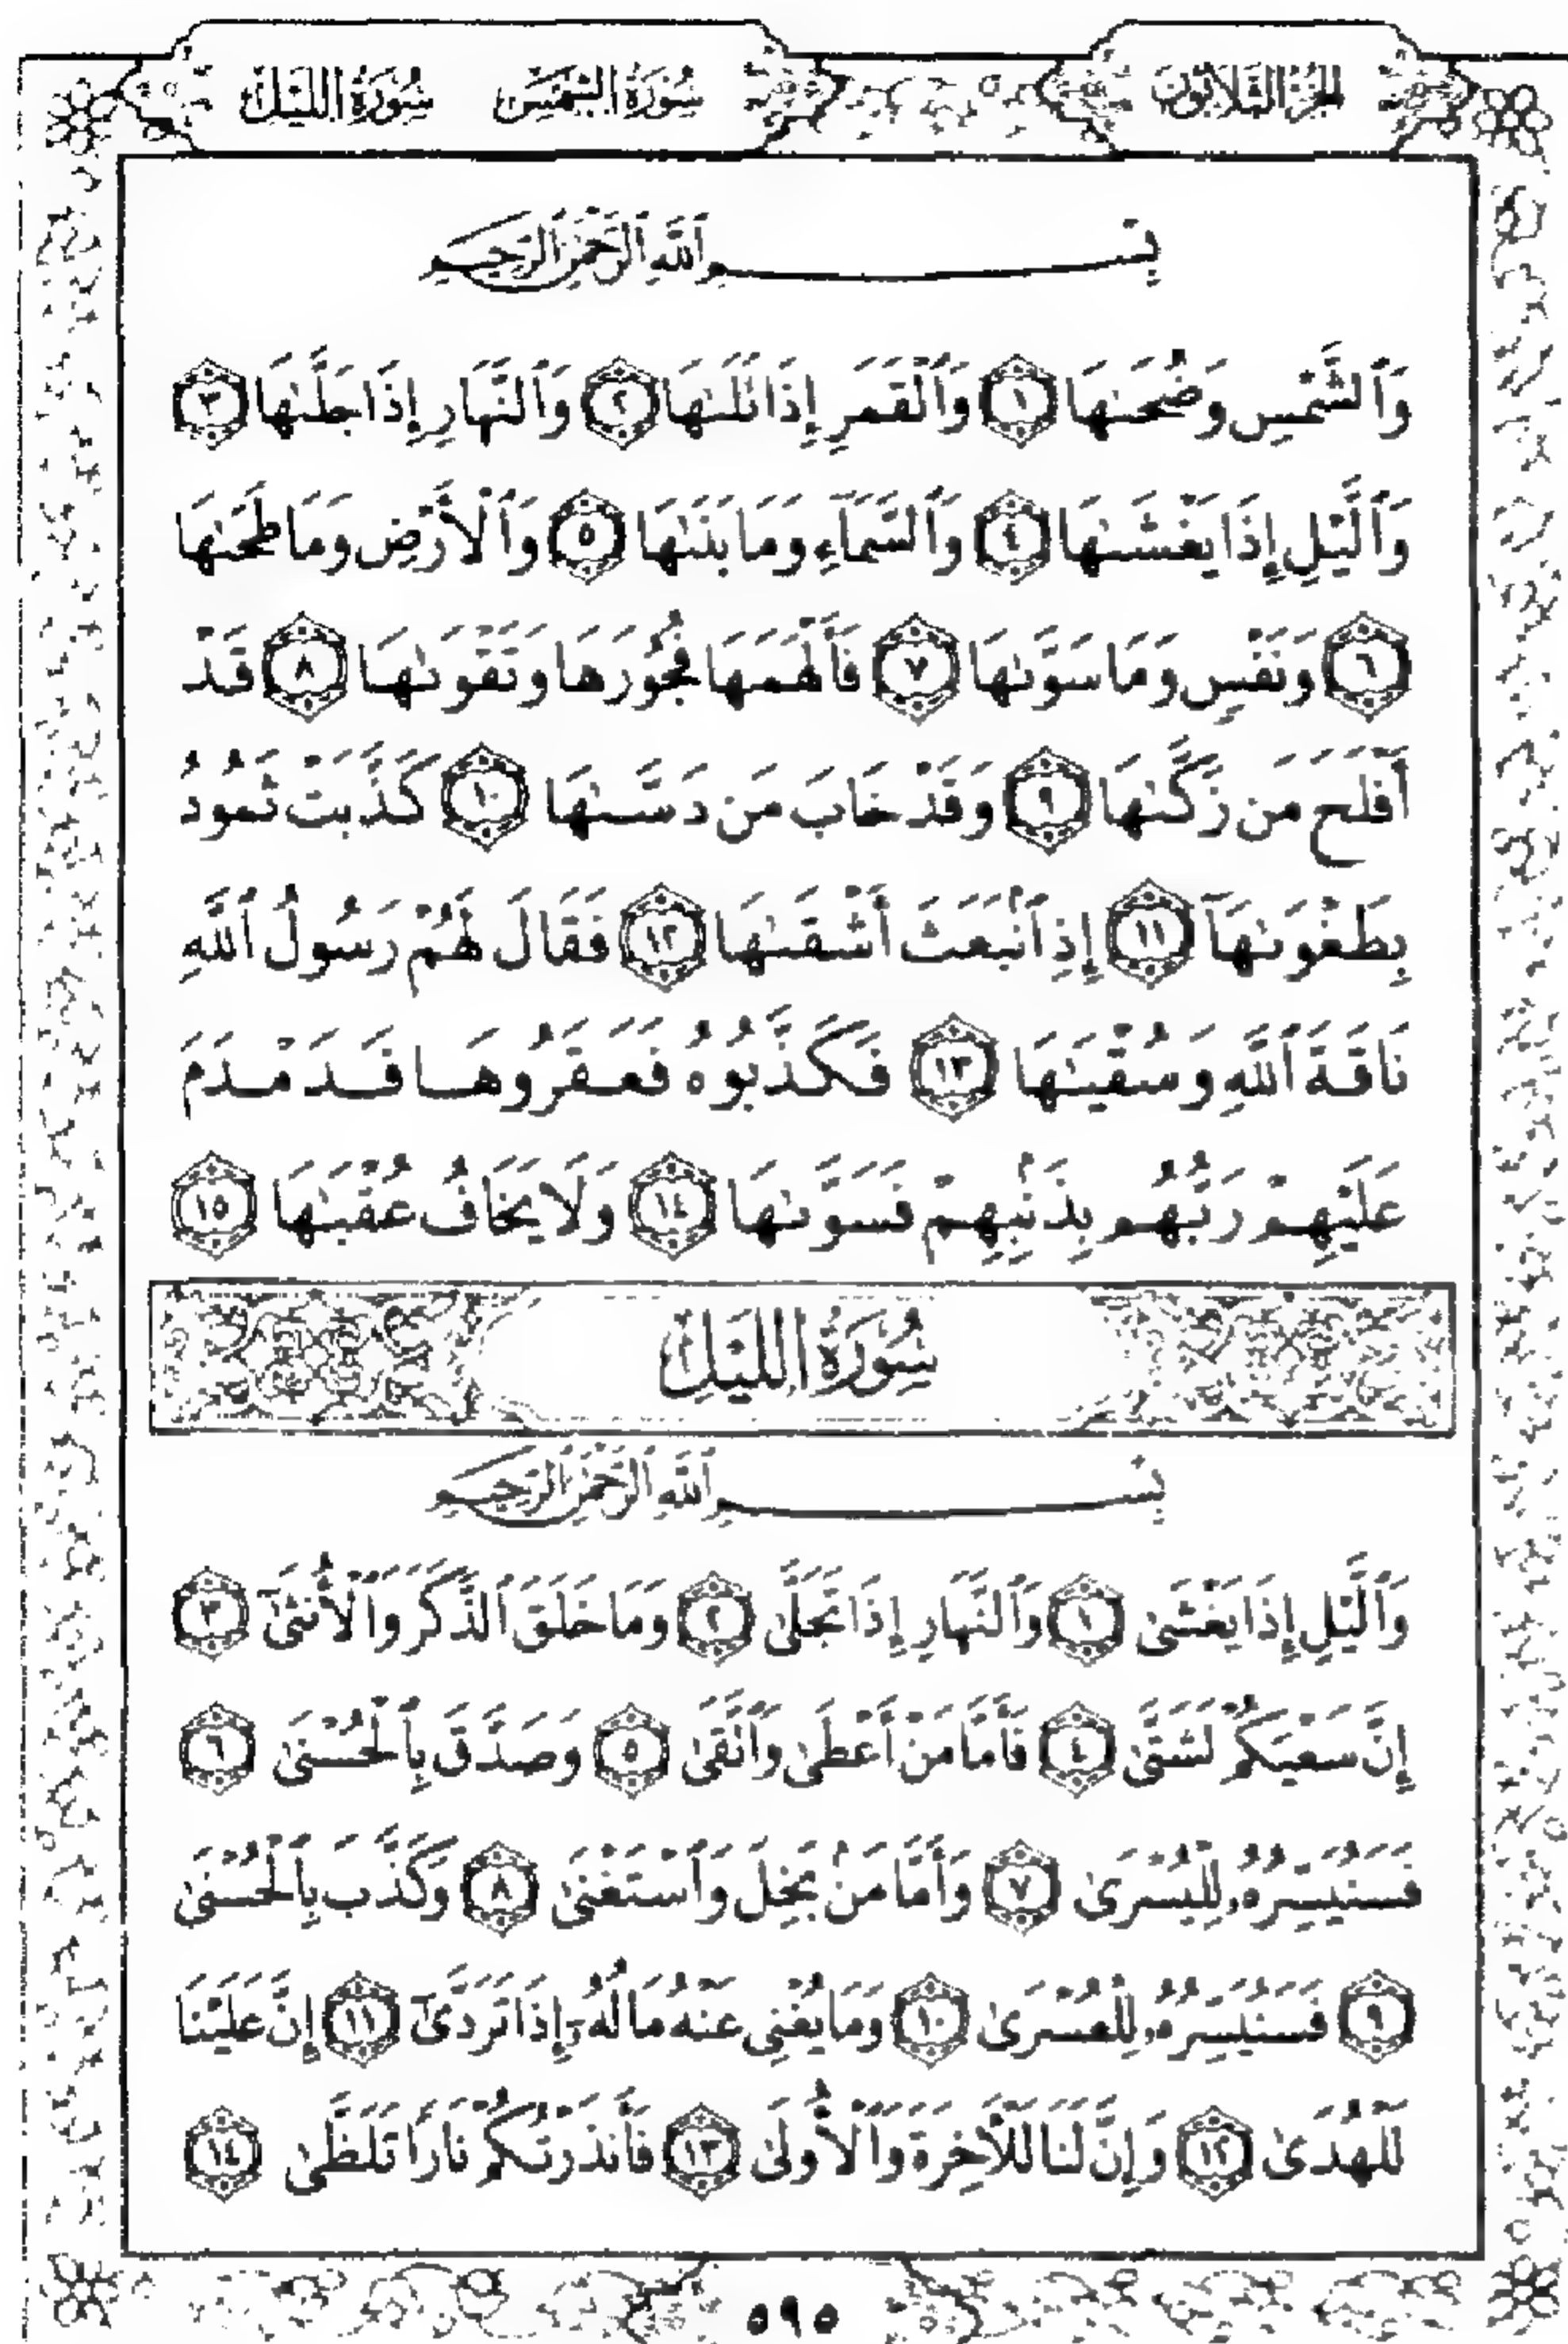 الجزء الثلاثون سورة الشمس سورة الليل
بِسْمِ ٱللَّهِ ٱلرَّحْمَٰنِ ٱلرَّحِيمِ
وَٱلشَّمْسِ وَضُحَىٰهَا ١ وَٱلْقَمَرِ إِذَا تَلَىٰهَا ٢ وَٱلنَّهَارِ إِذَا جَلَّىٰهَا ٣
وَٱلَّيْلِ إِذَا يَغْشَىٰهَا ٤ وَٱلسَّمَآءِ وَمَا بَنَىٰهَا ٥ وَٱلْأَرْضِ وَمَا طَحَىٰهَا
٦ وَنَفْسٍ وَمَا سَوَّىٰهَا ٧ فَأَلْهَمَهَا فُجُورَهَا وَتَقْوَىٰهَا ٨ قَدْ
أَفْلَحَ مَن زَكَّىٰهَا ٩ وَقَدْ خَابَ مَن دَسَّىٰهَا ١٠ كَذَّبَتْ ثَمُودُ
بِطَغْوَىٰهَآ ١١ إِذِ ٱنۢبَعَثَ أَشْقَىٰهَا ١٢ فَقَالَ لَهُمْ رَسُولُ ٱللَّهِ
نَاقَةَ ٱللَّهِ وَسُقْيَٰهَا ١٣ فَكَذَّبُوهُ فَعَقَرُوهَا فَدَمْدَمَ
عَلَيْهِمْ رَبُّهُم بِذَنۢبِهِمْ فَسَوَّىٰهَا ١٤ وَلَا يَخَافُ عُقْبَٰهَا ١٥
سُورَةُ اللَّيْلِ
بِسْمِ ٱللَّهِ ٱلرَّحْمَٰنِ ٱلرَّحِيمِ
وَٱلَّيْلِ إِذَا يَغْشَىٰ ١ وَٱلنَّهَارِ إِذَا تَجَلَّىٰ ٢ وَمَا خَلَقَ ٱلذَّكَرَ وَٱلْأُنثَىٰٓ ٣
إِنَّ سَعْيَكُمْ لَشَتَّىٰ ٤ فَأَمَّا مَنْ أَعْطَىٰ وَٱتَّقَىٰ ٥ وَصَدَّقَ بِٱلْحُسْنَىٰ ٦
فَسَنُيَسِّرُهُۥ لِلْيُسْرَىٰ ٧ وَأَمَّا مَنۢ بَخِلَ وَٱسْتَغْنَىٰ ٨ وَكَذَّبَ بِٱلْحُسْنَىٰ
٩ فَسَنُيَسِّرُهُۥ لِلْعُسْرَىٰ ١٠ وَمَا يُغْنِى عَنْهُ مَالُهُۥٓ إِذَا تَرَدَّىٰٓ ١١ إِنَّ عَلَيْنَا
لَلْهُدَىٰ ١٢ وَإِنَّ لَنَا لَلْـَٔاخِرَةَ وَٱلْأُولَىٰ ١٣ فَأَنذَرْتُكُمْ نَارًا تَلَظَّىٰ ١٤
٥٩٥